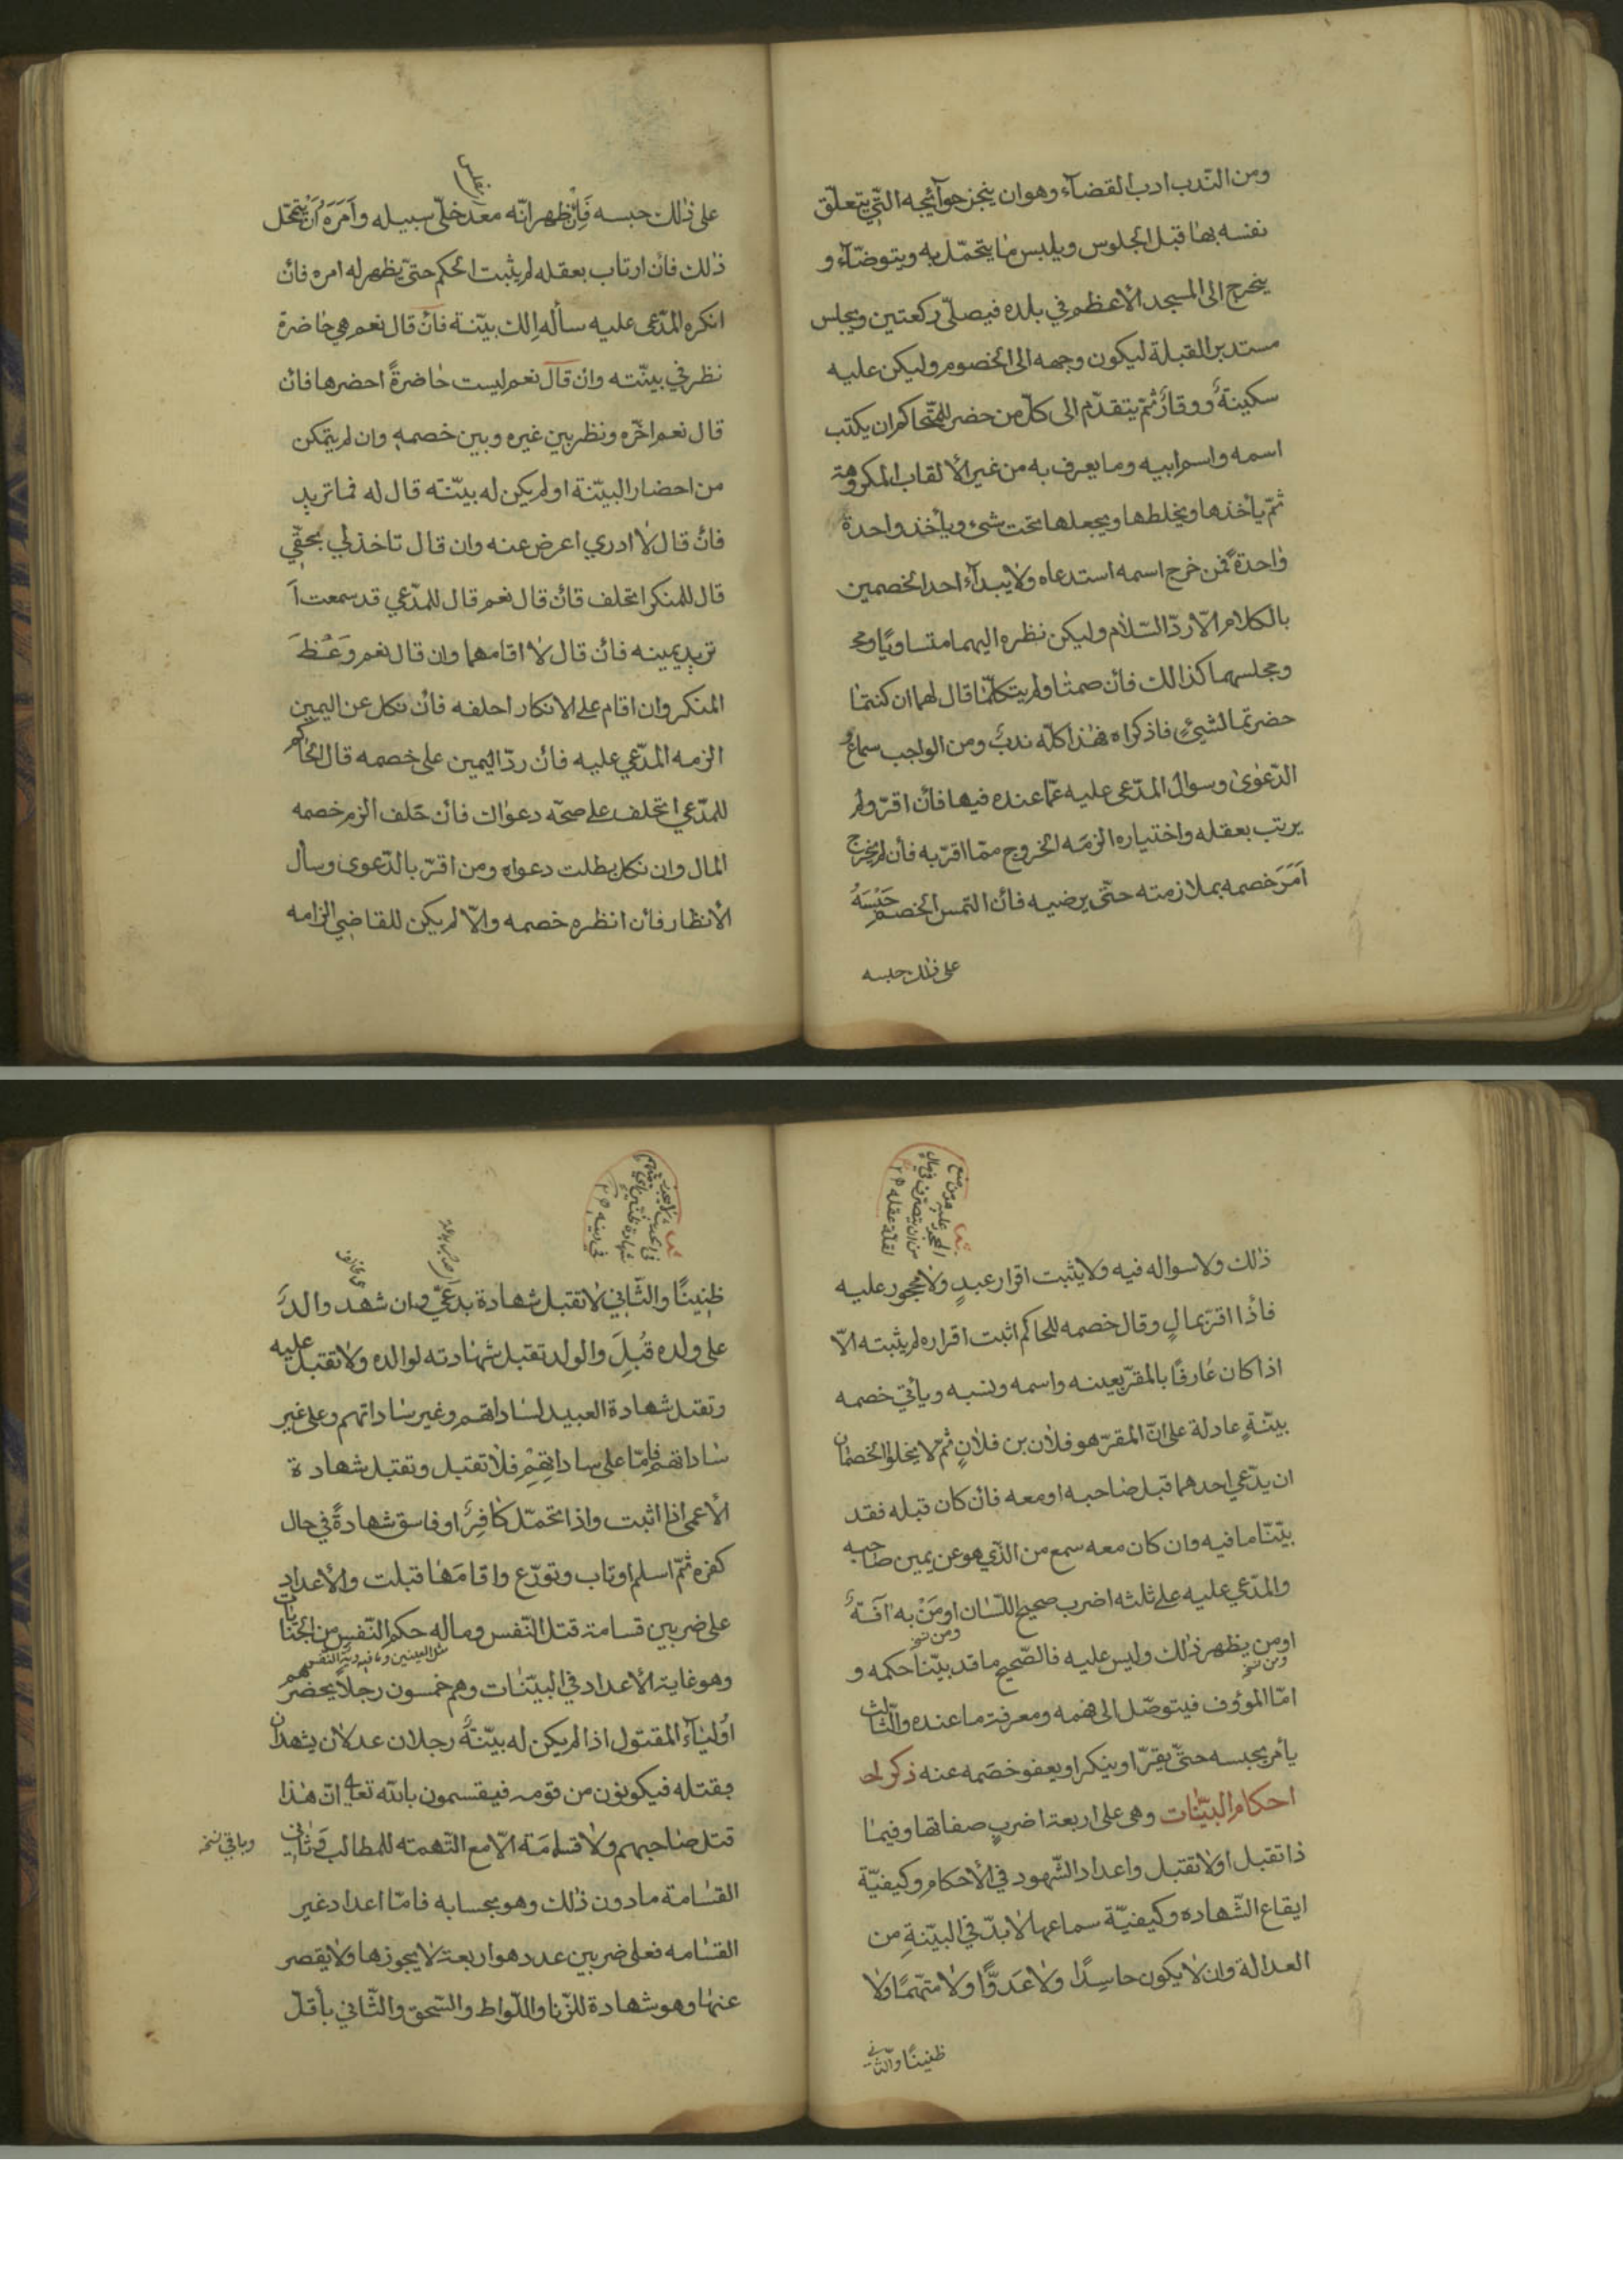 ومن النّدب ادب القضآء وهو ان ينجز حوآئيجه التّي يتعلّق
نفسه بها قبل الجلوس ويلبس ما يتجمّل به ويتوضّآء و
يخرج الى المسجد الأعظم في بلده فيصلّى ركعتين ويجلس
مستدبر القبلة ليكون وجهه الى الخصوم وليكن عليه
سكينةٌ ووقارٌ ثمّ يتقدّم الى كلّ من حضر للتّحاكم ان يكتب
اسمه واسم ابيه وما يعرف به من غير الألقاب المكروهة
ثمّ يأخذها ويخلطها ويجعلها تحت شيء ويأخذ واحدة
واحدةً فمن خرج اسمه استدعاه ولا يبدآء احد الخصمين
بالكلام الّا ردّ السّلام وليكن نظره اليهما متساويًا ومج
ومجلسهما كذالك فأن صمتا ولم يتكلّما قال لهما ان كنتما
حضرتما لشيئٍ فاذكراه فهذا كلّه ندبٌ ومن الواجب سماع
الدّعوى وسوال المدّعى عليه عمّا عنده فيها فأن اقرّ ولم
يرتب بعقله واختياره الزمه الخروج ممّا اقرّ به فأن لم يخرج
اَمَرَ خصمه بملازمته حتّى يرضيه فأن التمس الخصم حَبْسَهُ
على ذلك حبسه
على ذالك حبسه فَاِنْ ظهر انّه معدم خلّى سبيله واَمَرَهُ اَنْ يتمحّل
ذلك فأن ارتاب بعقله لم يثبت الحكم حتّى يظهر له امره فأن
انكره المدّعى عليه سأله الك بيّنة فأن قال نعم هي حاضرة
نظر في بينّته وان قال نعم ليست حاضرةً احضرها فأن
قال نعم اخّره ونظر بين غيره وبين خصمه وان لم يتمكن
من احضار البيّنة او لم يكن له بيّنته قال له فما تريد
فأن قال لا ادري اعرض عنه وان قال تاخذ لي بحقّي
قال للمنكر اتحلف فأن قال نعم قال للمدّعي قد سمعت اَ
تريد يمينه فأن قال لا اقامهما وان قال نعم وَعَظَ
المنكر وان اقام على الانكار احلفه فأن نكل عن اليمين
الزمه المدّعي عليه فأن ردّ اليمين على خصمه قال الحاكم
للمدّعي اتحلف على صحّه دعواك فأن حَلف الزم خصمه
المال وان نكل بطلت دعواه ومن اقرّ بالدّعوى وسأل
الأنظار فأن انظره خصمه والّا لم يكن للقاضي الزامه
ذلك ولا سواله فيه ولا يثبت اقرار عبدٍ ولا محجور عليه
فأذا اقرّ بمالٍ وقال خصمه للحاكم اثبت اقراره لم يثبته الّا
اذا كان عارفًا بالمقرّ بعينه واسمه ونسبه ويأتي خصمه
بيّنةٍ عادلة على انّ المقرّ هو فلان بن فلانٍ ثمّ لا يخلوا الخصمان
ان يدّعي احدهما قبل صاحبه او معه فأن كان قبله فقد
بيّنّا ما فيه وان كان معه سمع من الذّي هو عن يمين صاحبه
والمدّعي عليه على ثلثه اضرب صحيح اللّسان او مَنْ به آفَةٌ
ومن نسخ
او من يظهر ذلك وليس عليه فالصّحيح ما قد بيّنّا حكمه و
ومن نسخ
امّا المؤوف فيتوصّل الى فهمه ومعرفة ما عنده والثّالث
يأمر بحبسه حتّى يقرّ او ينكر او يعفو خصمه عنه ذكر اح
احكام البيّنات وهى على اربعة اضربٍ صفاتها وفيما
ذا تقبل او لا تقبل واعداد الشّهود في الأحكام وكيفيّة
ايقاع الشّهاده وكيفيّة سماعها لا بدّ في البيّنةِ من
العدالة وان لا يكون حاسِدًا ولا عَدوًّا ولا متّهمًا ولا
ظنينًا والثّاني
ظنينًا والثّاني لا تقبل شهادة بدعيّ وان شهد والدٌ
على ولده قُبِلَ والولد تقبل شهادته لوالده ولا تقبل عليه
وتقبل شهادة العبيد لساداتهم وغير ساداتهم وعلى غير
ساداتهم فامّا على ساداتهم فلا تقبل وتقبل شهادة
الأعمى اذا اثبت واذا تحمّل كافِرٌ او فاسق شهادةً في حال
كفره ثمّ اسلم او تاب وتورّع واقامَها قبلت والأعداد
على ضربين قسامة قتل النّفس وماله حكم النّفس من الجنايات
مثل العينين وما فيه دية النّفس
وهو غاية الأعداد في البيّنات وهم خمسون رجلًا يحضرهم
اوليآء المقتول اذا لم يكن له بيّنةٌ رجلان عدلان يشهدان
بقتله فيكونون من قومه فيقسمون بالله تعا انّ هذا
قتل صاحبهم ولا قسامَة الّا مع التّهمته للمطالب وَثاني
وباقي نسخ
القسامة ما دون ذلك وهو بحسابه فامّا اعداد غير
القسامه فعلى ضربين عدد هو اربعة لا يجوزها ولا يقصر
عنها وهو شهادة للزّنا واللّواط والسّحق والثّاني بأقلّ